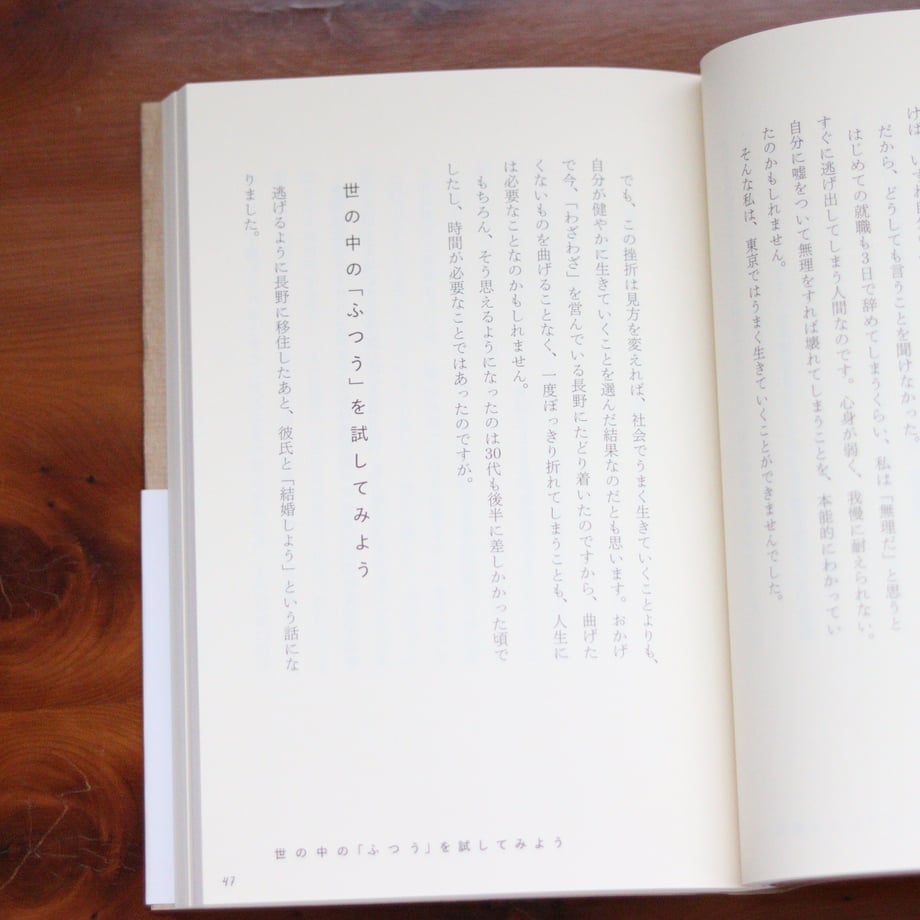 だから、どうしても言うことを聞けなかった。
はじめての就職も3日で辞めてしまうくらい、私は「無理だ」と思うと
すぐに逃げ出してしまう人間なのです。心身が弱く、我慢に耐えられない。
自分に嘘をついて無理をすれば壊れてしまうことを、本能的にわかってい
たのかもしれません。
そんな私は、東京ではうまく生きていくことができませんでした。
でも、この挫折は見方を変えれば、社会でうまく生きていくことよりも、
自分が健やかに生きていくことを選んだ結果なのだとも思います。おかげ
で今、「わざわざ」を営んでいる長野にたどり着いたのですから、曲げた
くないものを曲げることなく、一度ぽっきり折れてしまうことも、人生に
は必要なことなのかもしれません。
もちろん、そう思えるようになったのは30代も後半に差しかかった頃で
したし、時間が必要なことではあったのですが。
世の中の「ふつう」を試してみよう
逃げるように長野に移住したあと、彼氏と「結婚しよう」という話にな
りました。
世の中の「ふつう」を試してみよう
47